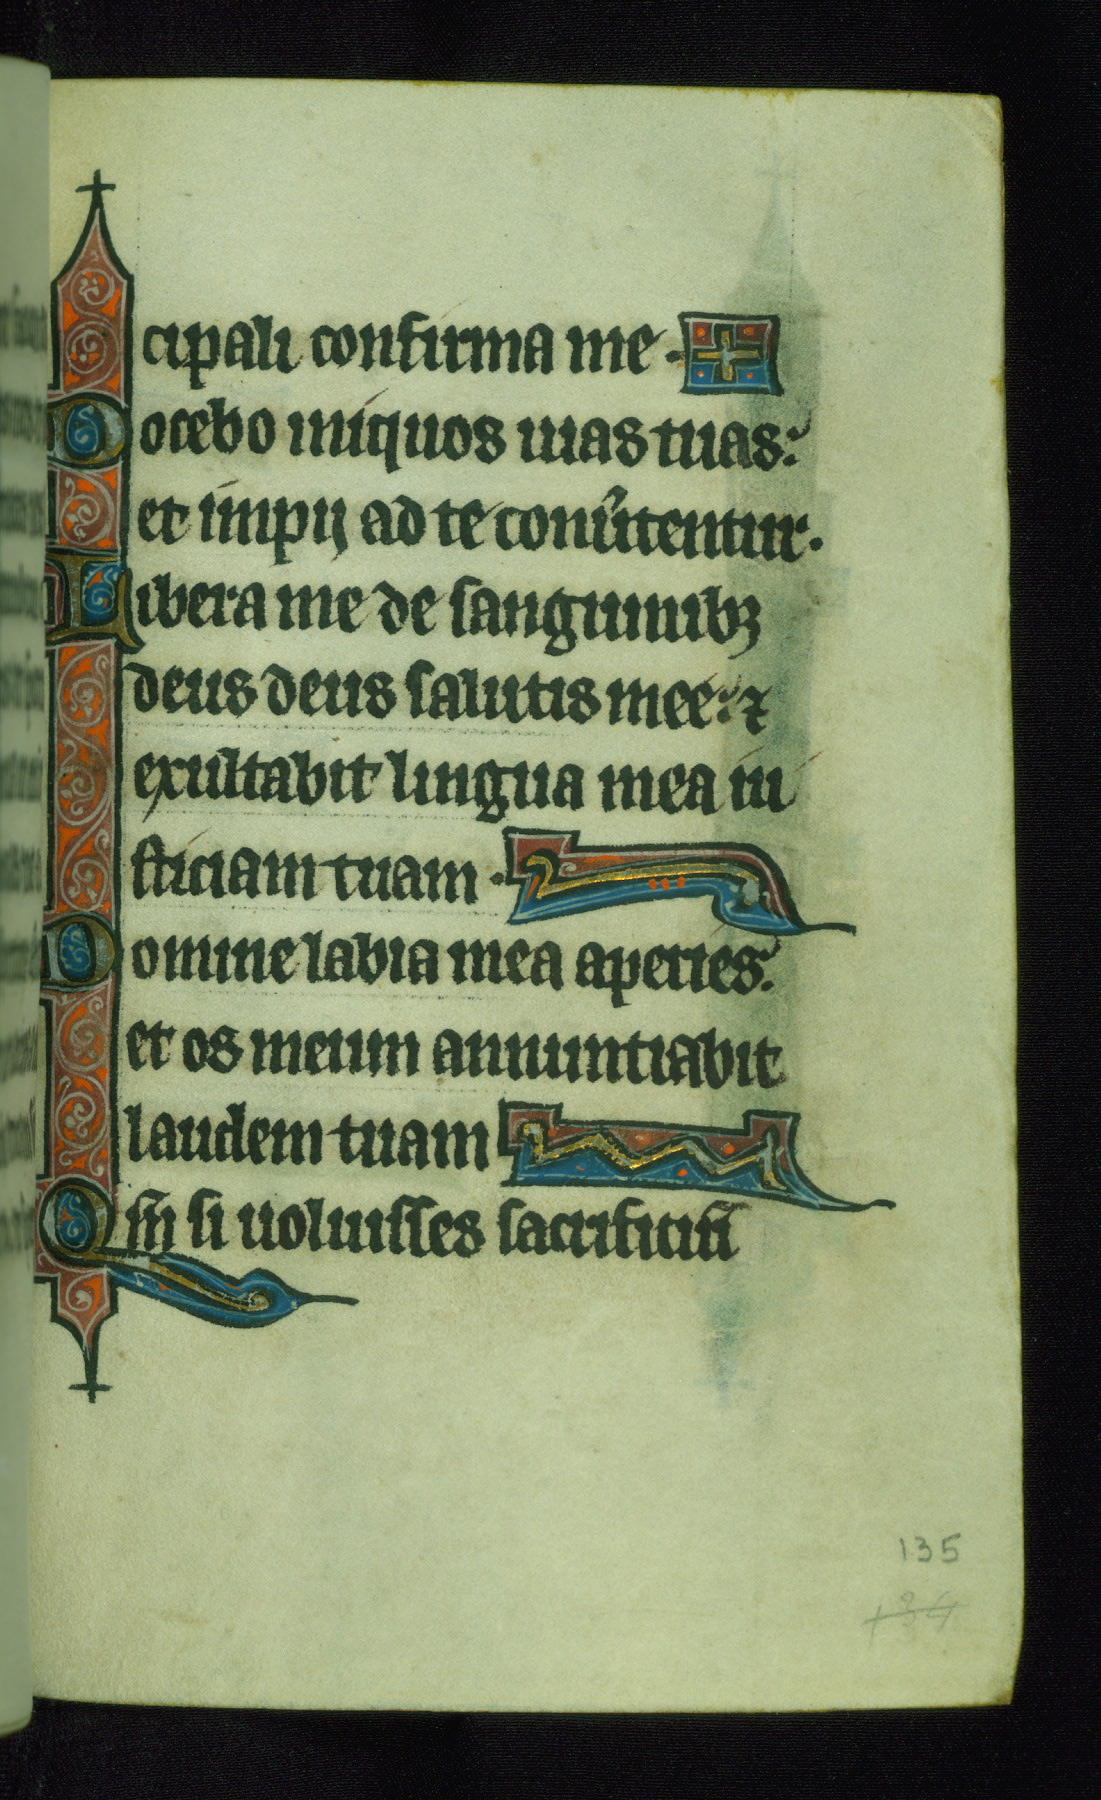 cipali confirma me·
Docebo iniquos uias tuas:
et impij ad te conu̾tentur.
Libera me de sanguinibꝫ
deus deus salutis mee: ⁊
exultabit lingua mea iu
sticiam tuam·
Domine labia mea aperies:
et os meum annuntiabit
laudem tuam
Qm̄ si uoluisses sacrificiū
135
134